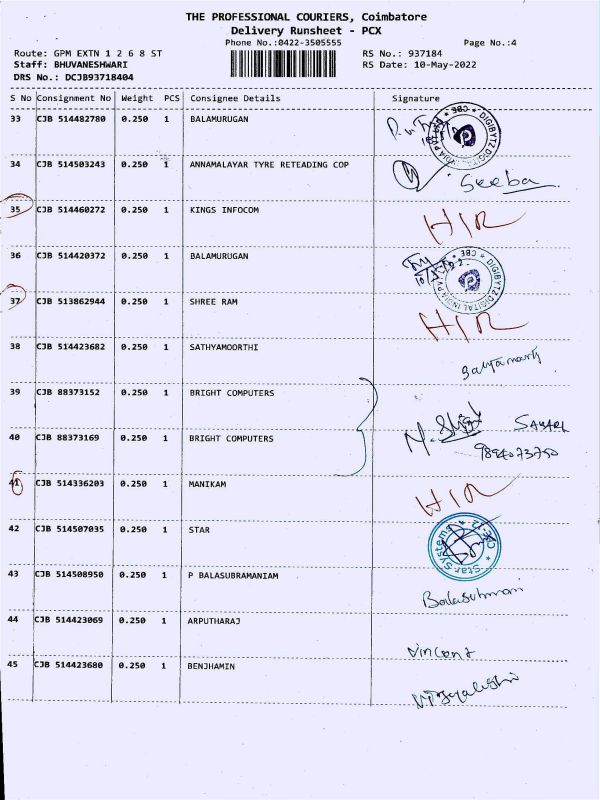 THE PROFESSIONAL COURIERS, Coimbatore
Delivery Runsheet - PCX
Phone No.:0422-3505555
Page No.:4
Route: GPM EXTN 1 2 6 8 ST
RS No.: 937184
Staff: BHUVANESHWARI
RS Date: 10-May-2022
DRS No.: DCJB93718404
S No Consignment No Weight PCS Consignee Details Signature
33 CJB 514482780 0.250 1 BALAMURUGAN
DIGIBYTZ DIGITAL INDIA PVT LTD * CBE *
34 CJB 514503243 0.250 1 ANNAMALAYAR TYRE RETEADING COP
Seeba
35 CJB 514460272 0.250 1 KINGS INFOCOM H/R
36 CJB 514420372 0.250 1 BALAMURUGAN
DIGIBYTZ DIGITAL INDIA PVT LTD * CBE *
37 CJB 513862944 0.250 1 SHREE RAM H/R
38 CJB 514423682 0.250 1 SATHYAMOORTHI
39 CJB 88373152 0.250 1 BRIGHT COMPUTERS
40 CJB 88373169 0.250 1 BRIGHT COMPUTERS
9894073750
41 CJB 514336203 0.250 1 MANIKAM H/R
42 CJB 514507035 0.250 1 STAR
Star Systems * CBE-12 *
43 CJB 514508950 0.250 1 P BALASUBRAMANIAM
44 CJB 514423069 0.250 1 ARPUTHARAJ
Vincent
45 CJB 514423680 0.250 1 BENJHAMIN